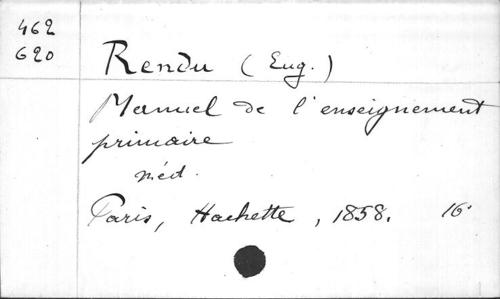 462
620
Rendu (Eug.)
Manuel de l'enseignement
primaire
Paris, Hachette, 1858. 16°